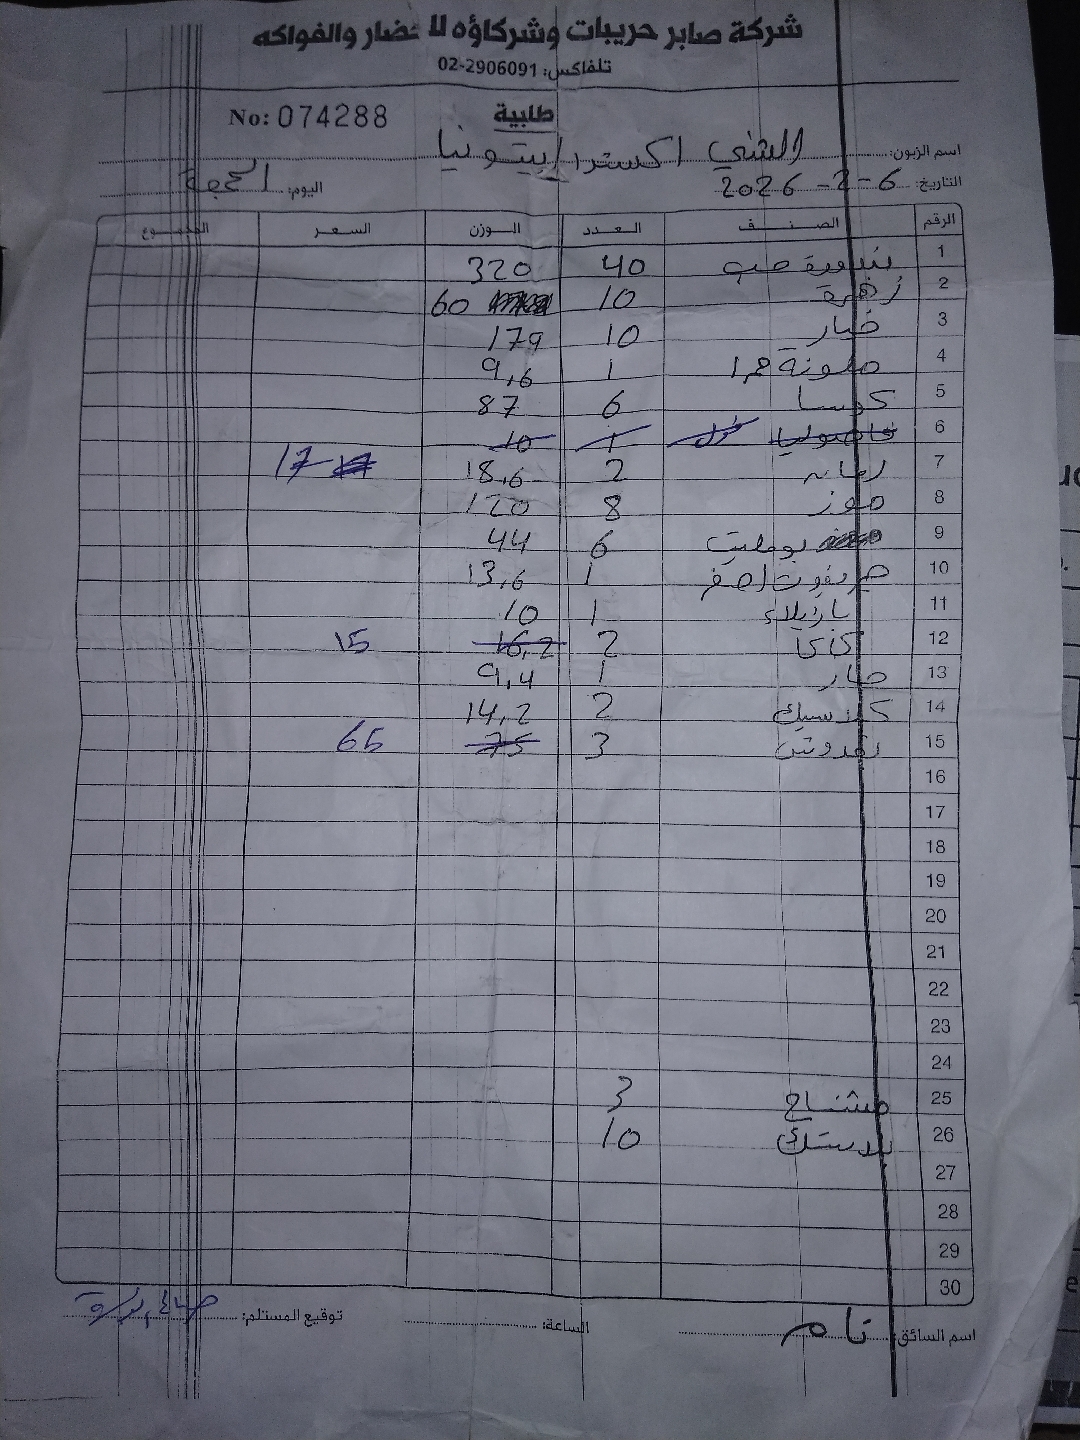 شركة صابر حريبات وشركاؤه للخضار والفواكه
تلفاكس: 02-2906091
طلبية
No: 074288
اسم الزبون: الشني اكسترا / بيتونيا
التاريخ: 6-2-2026 اليوم: الجمعة
الرقم الصنف العدد الوزن السعر المجموع
1 بندورة حب 40 320
2 زهرة 10 60
3 خيار 10 179
4 ملونة حمرا 1 9,6
5 كوسا 6 87
6 فاصوليا 1 10
7 رمانه 2 18,6 17
8 موز 8 120
9 بومليت 6 44
10 جريفوت اصفر 1 13,6
11 بازيلاء 1 10
12 كاكا 2 16,2 15
13 حار 1 9,4
14 كلاسيك 2 14,2
15 بقدونس 3 75 65
16
17
18
19
20
21
22
23
24
25 مشتاح 3
26 بلاستك 10
27
28
29
30
اسم السائق: تامر الساعة: توقيع المستلم: